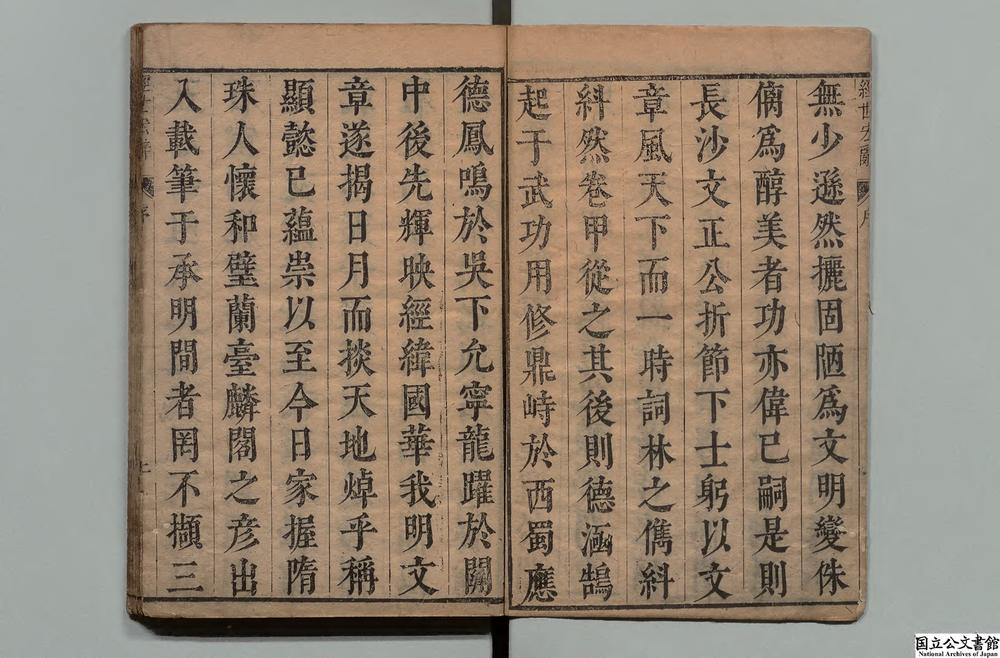 無少遜然攦固陋爲文明變侏
㒧爲醇美者功亦偉已嗣是則
長沙文正公折節下士躬以文
章風天下而一時詞林之儁糾
糾然卷甲從之其後則德涵鵠
起于武功用修鼎峙於西蜀應
德鳳鳴於吳下允寧龍躍於關
中後先輝映經緯國華我明文
章遂揭日月而掞天地焯乎稱
顯懿已蘊崇以至今日家握隋
珠人懷和璧蘭臺麟閣之彦出
入載筆于承明間者罔不擷三
經世宏辭
序
序
国立公文書館
National Archives of Japan